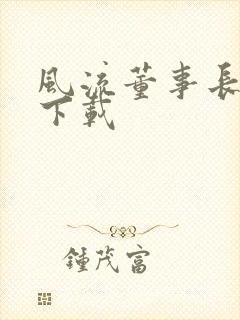 風流董事長
下載
鍾茂富